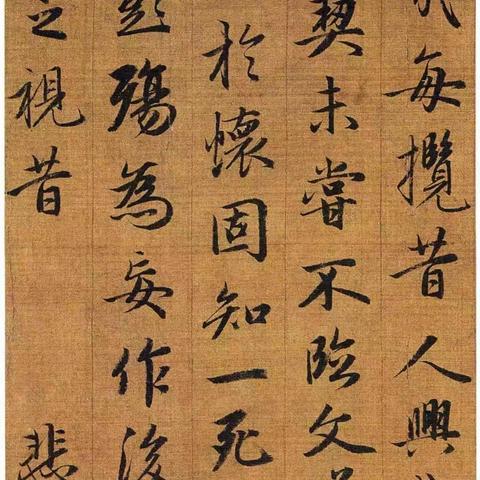 每攬昔人興
契未嘗不臨文
於懷固知一死
殤為妄作後
之視昔 悲